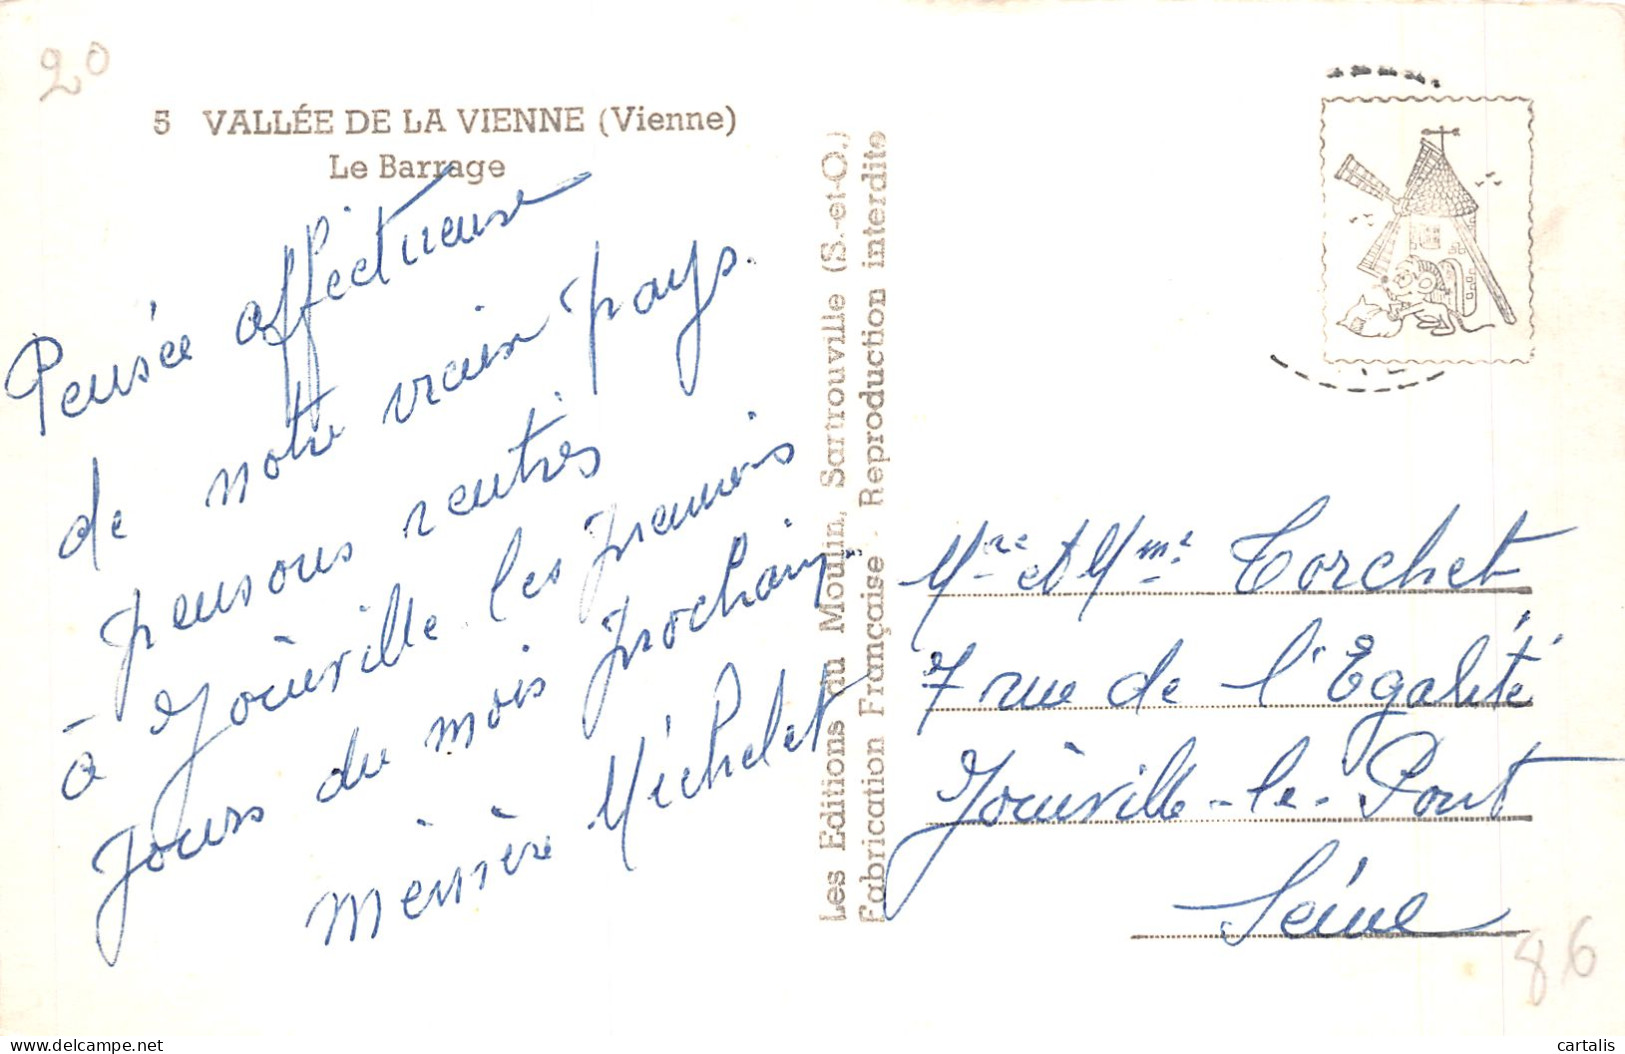 20
5 VALLÉE DE LA VIENNE (Vienne)
Le Barrage
Pensée affectueuse
de notre vieux pays.
pensons rentrés
à Joinville les premiers
jours du mois prochain
Michelet
Les Editions du Moulin, Sartrouville (S.-et-O.)
Fabrication Française - Reproduction interdite
Mre et Mme Torchet
7 rue de l'Egalité
Joinville-le-Pont
Seine
86
cartalis
delcampe.net